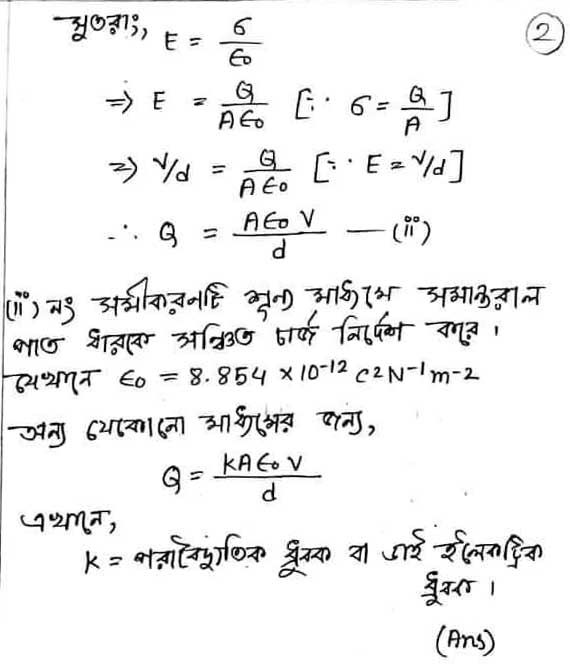 সুতরাং, E = σ/ϵ₀
②
⇒ E = Q/Aϵ₀ [∵ σ = Q/A]
⇒ V/d = Q/Aϵ₀ [∵ E = V/d]
∴ Q = Aϵ₀V/d — (ii)
(ii) নং সমীকরনটি শূন্য মাধ্যমে সমান্তরাল
পাত ধারকে সঞ্চিত চার্জ নির্দেশ করে।
যেখানে ϵ₀ = 8.854 × 10-12 C2N-1m-2
অন্য যেকোনো মাধ্যমের জন্য,
Q = KAϵ₀V/d
এখানে,
K = পরাবৈদ্যুতিক ধ্রুবক বা ডাই ইলেকট্রিক
ধ্রুবক।
(Ans)